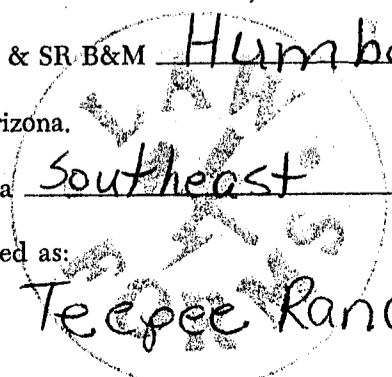 & SR B&M Humb
rizona.
a Southeast
ed as:
Teepee Ran
LAW FORMS